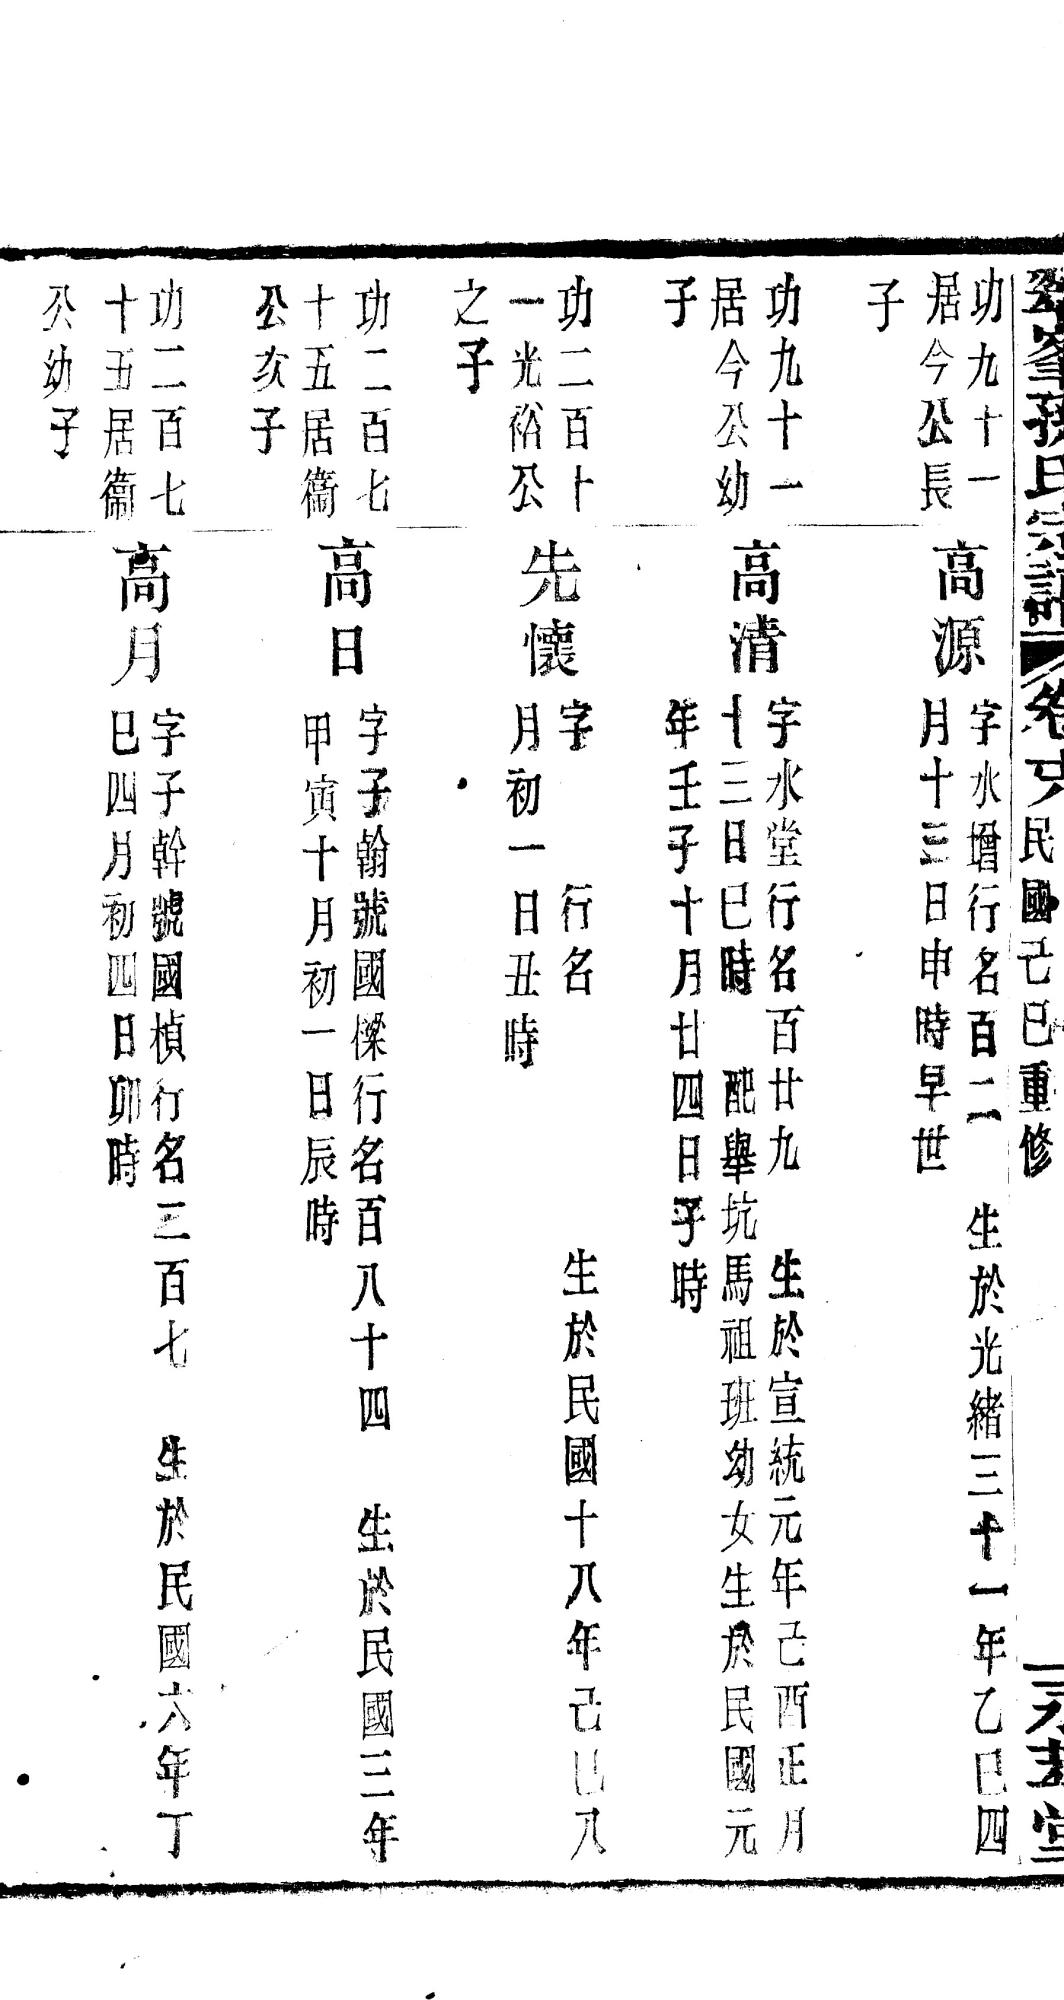 峯孫氏宗譜 卷 民國己巳重修 一 堂
功九十一
居今公長
子
高源
字水增行名百二 生於光緒三十一年乙巳四
月十三日申時早世
功九十一
居今公幼
子
高清
字水堂行名百廿九 生於宣統元年己酉正月
十三日巳時 配舉坑馬祖班幼女生於民國元
年壬子十月廿四日子時
功二百十
一光裕公
之子
先懷
字 行名 生於民國十八年己巳八
月初一日丑時
功二百七
十五居衞
公次子
高日
字子翰號國樑行名百八十四 生於民國三年
甲寅十月初一日辰時
功二百七
十五居衞
公幼子
高月
字子幹號國楨行名三百七 生於民國六年丁
巳四月初四日卯時